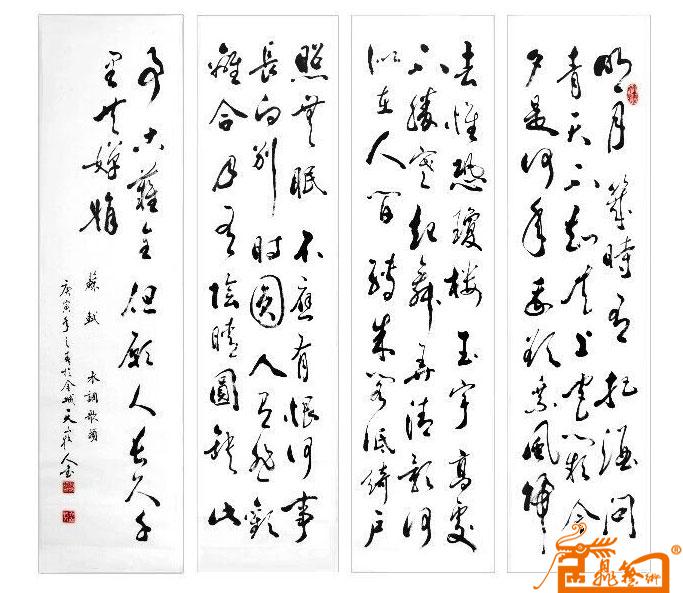 明月幾時有把酒問
青天不知天上宮闕今
夕是何年我欲乘風歸
去惟恐瓊樓玉宇高處
不勝寒起舞弄清影何
似在人間轉朱閣低綺戶
照無眠不應有恨何事
長向別時圓人有悲歡
離合月有陰晴圓缺此
事古難全但願人長久千
里共嬋娟
蘇軾 水調歌頭
庚寅年之春於金城天山